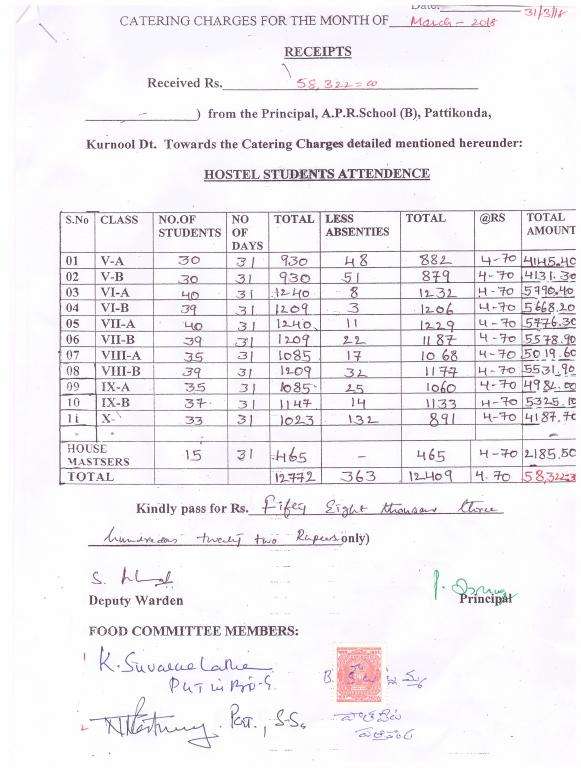 Date:
31/3/18
CATERING CHARGES FOR THE MONTH OF March - 2018
RECEIPTS
Received Rs. 58,322=00
) from the Principal, A.P.R.School (B), Pattikonda,
Kurnool Dt. Towards the Catering Charges detailed mentioned hereunder:
HOSTEL STUDENTS ATTENDENCE
S.No CLASS NO.OF STUDENTS NO OF DAYS TOTAL LESS ABSENTIES TOTAL @RS TOTAL AMOUNT
01 V-A 30 31 930 48 882 4-70 4145.40
02 V-B 30 31 930 51 879 4-70 4131.30
03 VI-A 40 31 1240 8 1232 4-70 5790.40
04 VI-B 39 31 1209 3 1206 4-70 5668.20
05 VII-A 40 31 1240 11 1229 4-70 5776.30
06 VII-B 39 31 1209 22 1187 4-70 5578.90
07 VIII-A 35 31 1085 17 1068 4-70 5019.60
08 VIII-B 39 31 1209 32 1177 4-70 5531.90
09 IX-A 35 31 1085 25 1060 4-70 4982.00
10 IX-B 37 31 1147 14 1133 4-70 5325.10
11 X- 33 31 1023 132 891 4-70 4187.70
HOUSE MASTSERS 15 31 465 - 465 4-70 2185.50
TOTAL 12772 363 12409 4.70 58,322=3
Kindly pass for Rs. Fifty Eight thousan three
hundredas twenty two Rupees only)
Deputy Warden
Principal
FOOD COMMITTEE MEMBERS:
1 K. Suvarna Latha
2